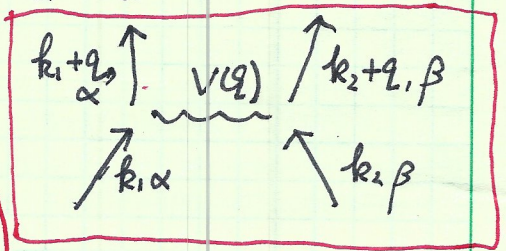 k₁+q, α
V(q)
k₂+q, β
k₁α
k₂β